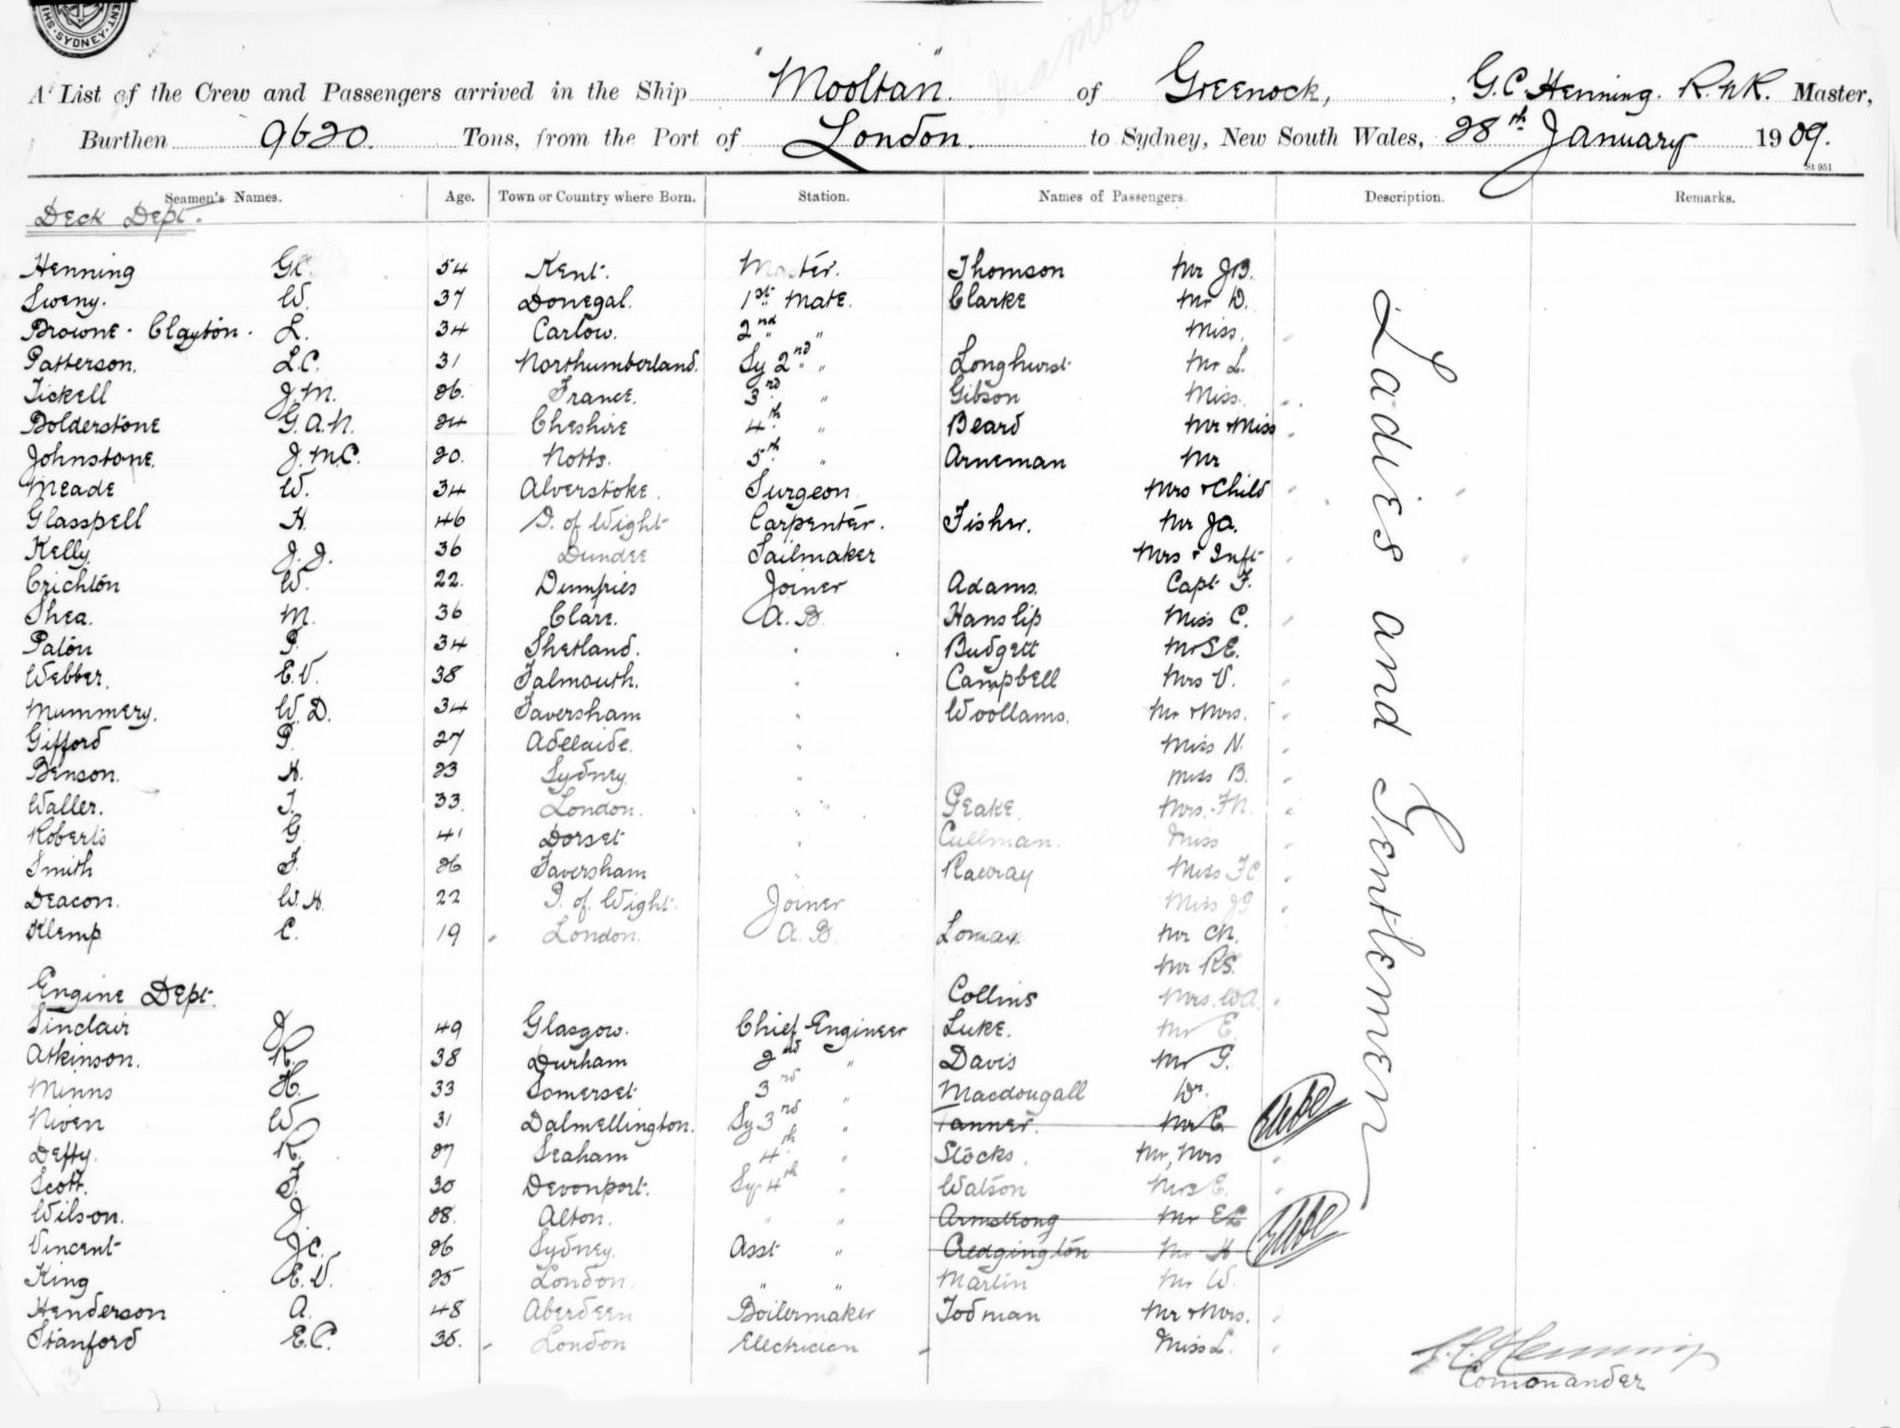 SYDNEY
A List of the Crew and Passengers arrived in the Ship "Mooltan" of Greenock, G.C. Henning. R.N.R. Master,
Burthen 9620. Tons, from the Port of London. to Sydney, New South Wales, 28th January 1909.
St 951
Seamen's Names. Age. Town or Country where Born. Station. Names of Passengers. Description. Remarks.
Deck Dept.
Henning G.C. 54 Kent. Master. Thomson Mr J.B.
Sweny. W. 37 Donegal. 1st Mate. Clarke Mr D.
Browne-Clayton. L. 34 Carlow. 2nd " Miss.
Patterson. L.C. 31 Northumberland. Sy 2nd " Longhurst Mr L.
Tickell J.M. 26. France. 3rd " Gibson Miss.
Bolderstone G.A.N. 24 Cheshire 4th " Beard Mr & Miss
Johnstone. J.M.C. 20. Notts. 5th " Arneman Mr
Meade W. 34 Alverstoke. Surgeon Mrs & Child
Glasspell H. 46 I. of Wight Carpenter. Fisher. Mr Ja.
Kelly. J.J. 36 Dundee Sailmaker Mrs & Inft
Crichton W. 22. Dumfries Joiner Adams. Capt F.
Shea. M. 36 Clare. A.B. Hanslip Miss C.
Paton P. 34 Shetland. " Budgett Mr S.E.
Webber. E.V. 38 Falmouth. " Campbell Mrs V.
Mummery. W.D. 34 Faversham " Woollams. Mr & Mrs.
Gifford P. 27 Adelaide. " Miss N.
Benson. H. 23 Sydney. " Miss B.
Waller. T. 33. London. " Peake. Mrs. F.M.
Roberts G. 41 Dorset " Cullman. Miss
Smith F. 26 Faversham " Raworay Miss F.C.
Deacon. W.H. 22 I. of Wight. Joiner Miss J.G
Klemp C. 19 London. A.B. Lomax Mr Ch.
Mr R.S.
Engine Dept. Collins Mrs. W.A.
Sinclair J. 49 Glasgow. Chief Engineer Luke. Mr E.
Atkinson. R. 38 Durham 2nd " Davis Mr G.
Minns H. 33 Somerset 3rd " Macdougall Dr.
Niven W. 31 Dalmellington. Sy 3rd " Tanner. Mr E.
Deffy. R. 27 Seaham 4th " Stocks. Mr, Mrs
Scott. F. 30 Devonport. Sy 4th " Watson Mrs E.
Wilson. J. 28. Alton. " " Armstrong Mr E.C
Vincent J.C. 26 Sydney. Asst " Credgington Mr H
King E.V. 25 London. " " Martin Mr W.
Henderson A. 48 Aberdeen Boilermaker Todman Mr & Mrs.
Stanford E.C. 35. London Electrician Miss L.
Ladies and Gentlemen
G.C. Henning
Commander